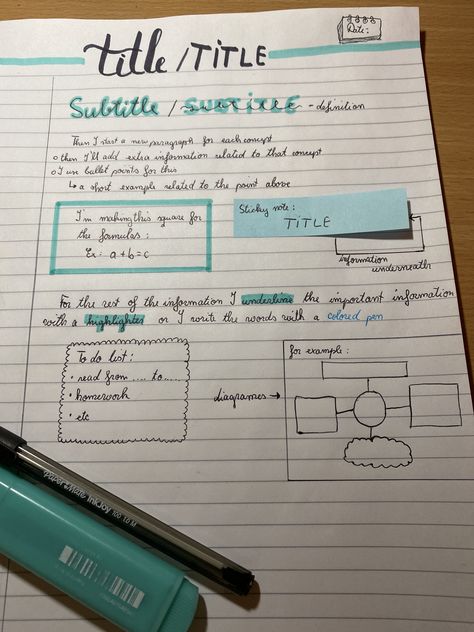 Date:
title/TITLE
Subtitle / SUBTITLE - definition
Then I start a new paragraph for each concept
o then I'll add extra information related to that concept
o I use bullet points for this
↳ a short example related to the point above
I'm making this square for
the formulas:
Ex: a+b=c
Sticky note:
TITLE
information
underneath
For the rest of the information I underline the important information
with a highlighter or I write the words with a colored pen
To do list:
• read from ..... to .....
• homework
• etc
diagrames →
for example:
Paper Mate InkJoy 100 1.0 M